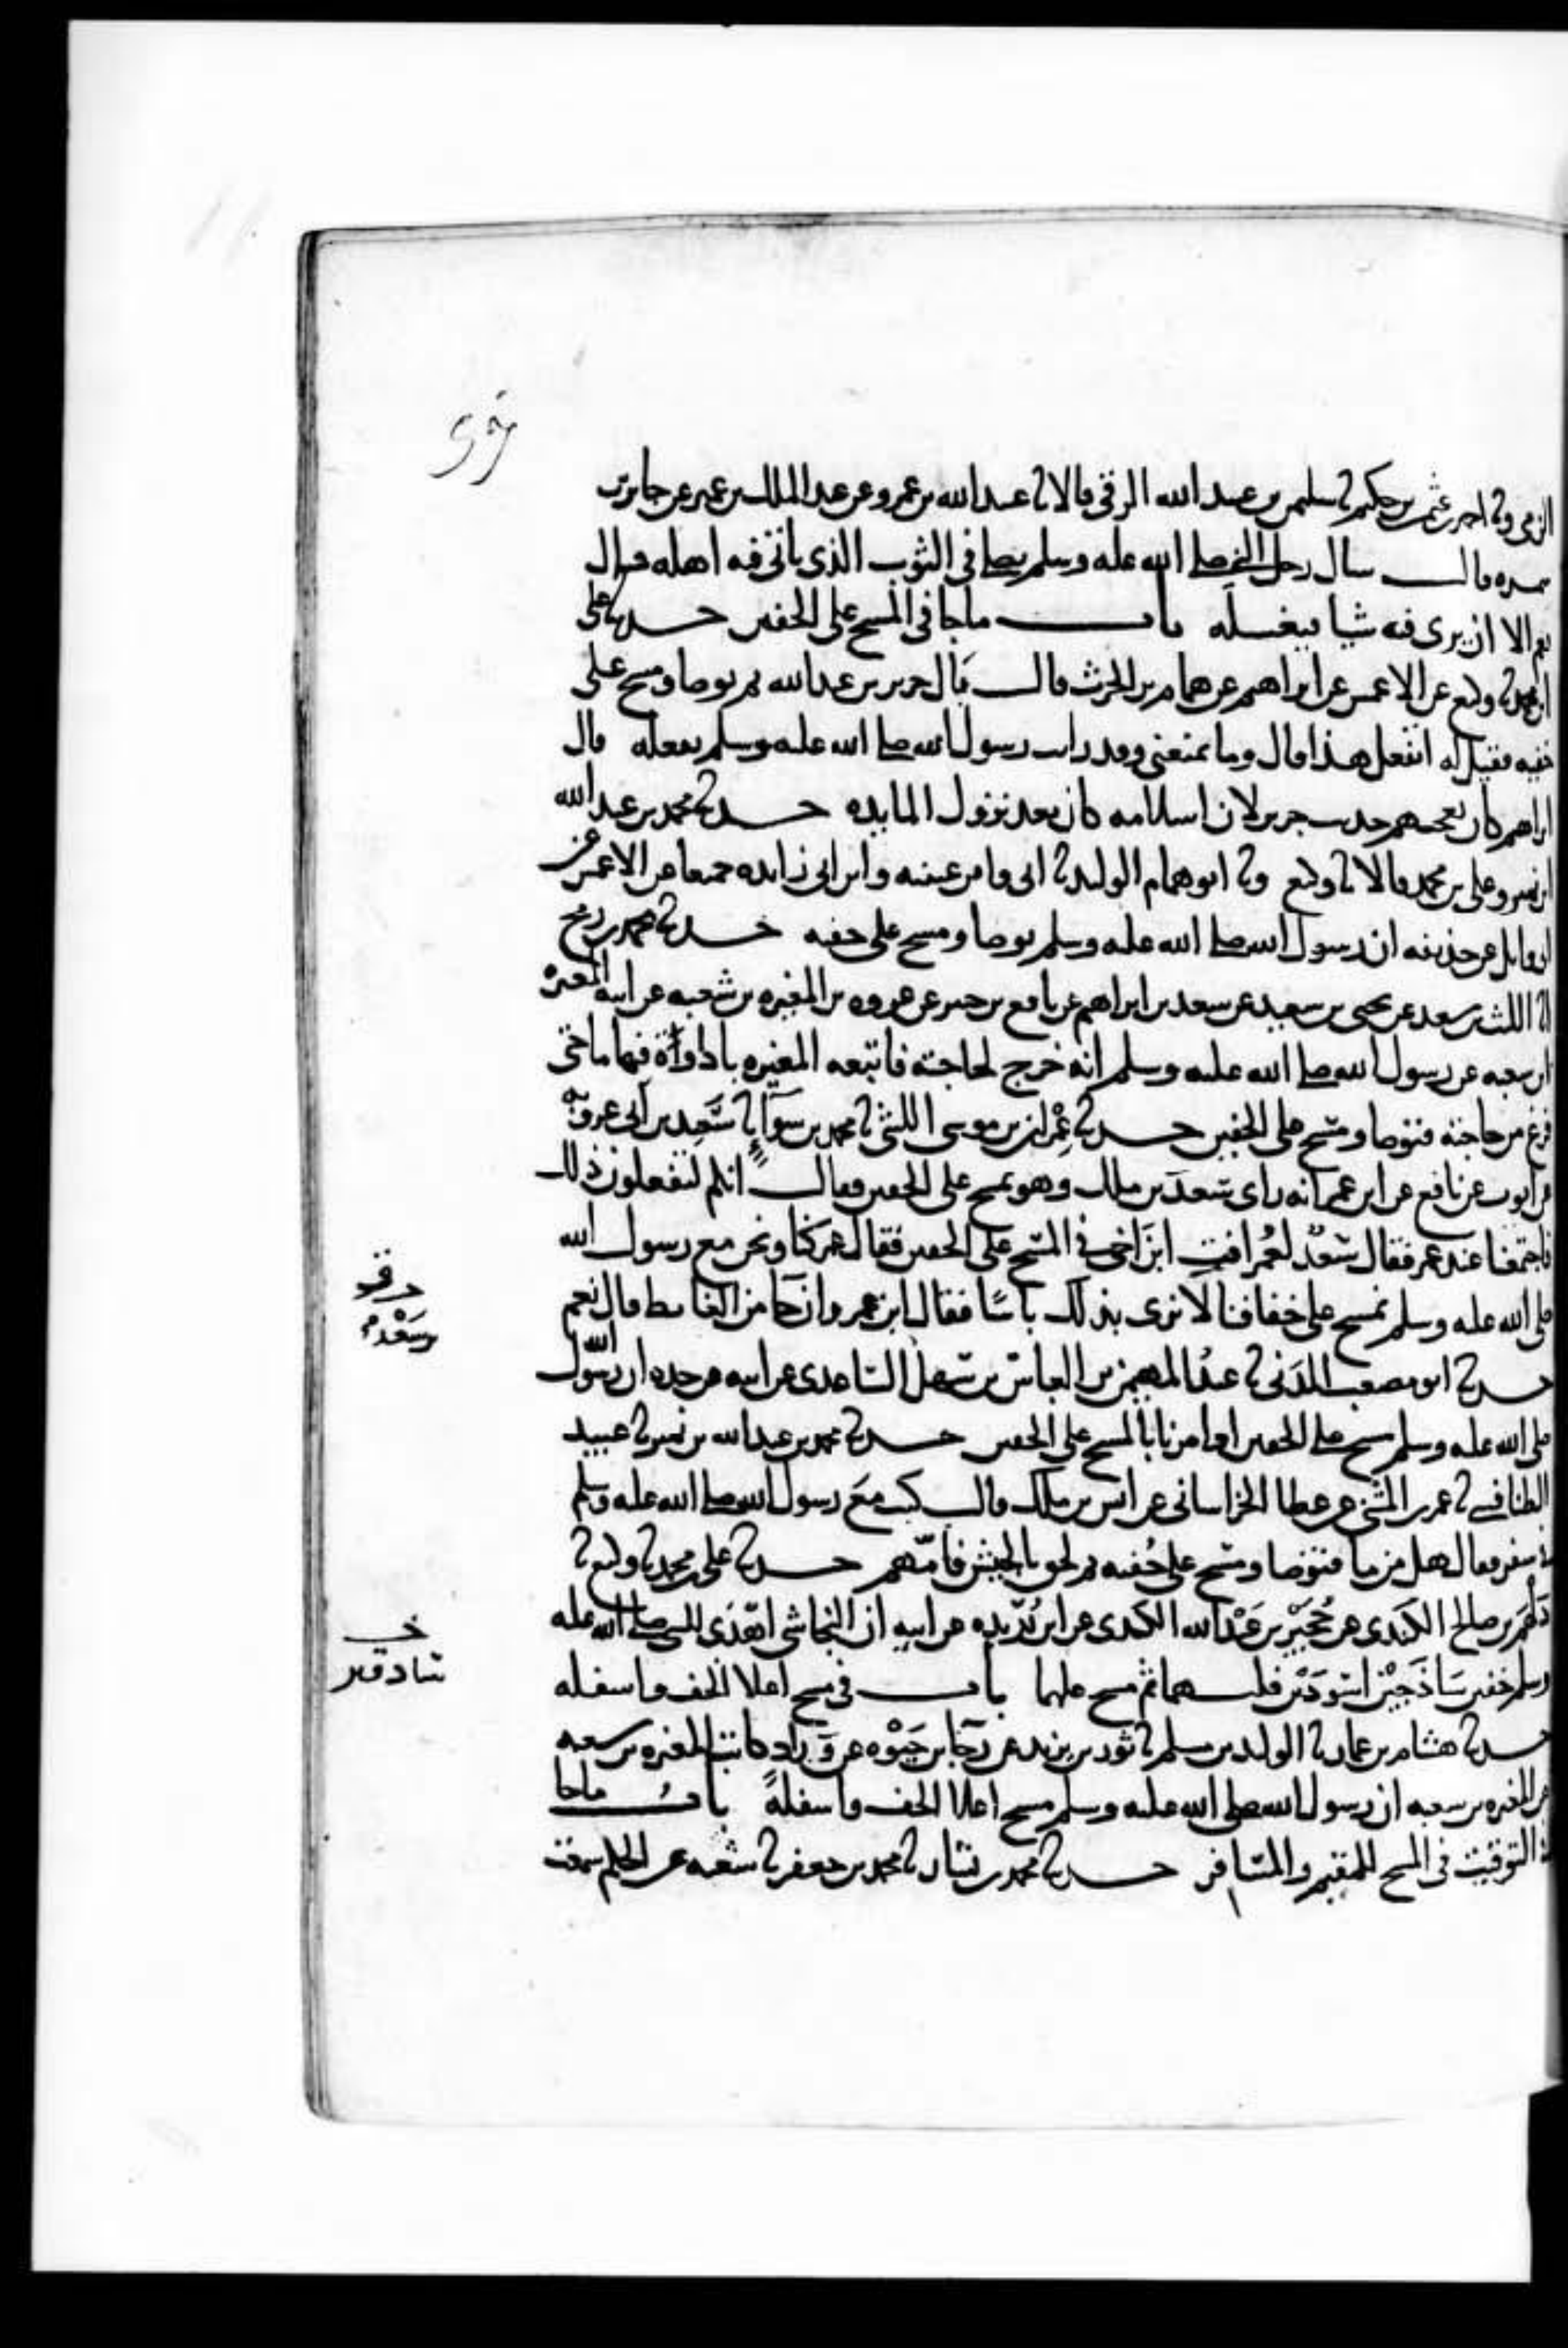 الزمي وثنا احمد بن عثمن بن حكيم ثنا سليمن بن عبيد الله الرقي قالا ثنا عبيد الله بن عمرو عن عبد الملك بن عمير عن جابر بن
سمره قال سال رجل النبي صلى الله عليه وسلم يصلي في الثوب الذي ياتي فيه اهله قال
نعم الا ان يرى فيه شيا فيغسله باب ما جا في المسح على الخفين حدثنا علي
ابن محمد ثنا وكيع عن الاعمش عن ابراهيم عن همام بن الحرث قال بال جرير بن عبد الله ثم توضا ومسح على
خفيه فقيل له اتفعل هذا قال وما يمنعني وقد رايت رسول الله صلى الله عليه وسلم يفعله قال
ابراهيم كان يعجبهم حديث جرير لان اسلامه كان بعد نزول المايده حدثنا محمد بن عبد الله
ابن نمير وعلي بن محمد قالا ثنا وكيع وثنا ابو همام الوليد ثنا ابي وابن عيينه وابن ابي زايده جميعا عن الاعمش عن
ابي وايل عن حذيفه ان رسول الله صلى الله عليه وسلم توضا ومسح على خفيه حدثنا محمد بن رمح
انا الليث بن سعد عن يحيى بن سعيد عن سعد بن ابراهيم عن نافع بن جبير عن عروه بن المغيره بن شعبه عن ابيه المغيرة
ابن شعبه عن رسول الله صلى الله عليه وسلم انه خرج لحاجته فاتبعه المغيره باداوة فيها ما حتى
فرغ من حاجته فتوضا ومسح على الخفين حدثنا عمران بن موسى الليثي ثنا محمد بن سوا ثنا سعيد بن ابي عروبه
عن ايوب عن نافع عن ابن عمر انه راى سعد بن ملك وهو يمسح على الخفين فقال انكم لتفعلون ذلك
فاجتمعنا عند عمر فقال سعد لعمر افت ابن اخي في المسح على الخفين فقال عمر كنا ونحن مع رسول الله
صلى الله عليه وسلم نمسح على خفافنا لا نرى بذلك باسا فقال ابن عمر وان جا من الغايط قال نعم
حدثنا ابو مصعب المدني ثنا عبد المهيمن بن العباس بن سهل الساعدي عن ابيه عن جده ان رسول الله
صلى الله عليه وسلم مسح على الخفين وامرنا بالمسح على الخفين حدثنا محمد بن عبد الله بن نمير ثنا عمر بن عبيد
الطنافسي ثنا عمر بن المثنى عن عطا الخراساني عن انس بن ملك قال كنت مع رسول الله صلى الله عليه وسلم
في سفر فقال هل من ما فتوضا ومسح على خفيه ثم لحق بالجيش فامهم حدثنا علي بن محمد ثنا وكيع ثنا
دلهم بن صالح الكندي عن حجير بن عبد الله الكندي عن ابن بريده عن ابيه ان النجاشي اهدى للنبي صلى الله عليه
وسلم خفين ساذجين اسودين فلبسهما ثم مسح عليهما باب في مسح اعلا الخف واسفله
حدثنا هشام بن عمار ثنا الوليد بن مسلم ثنا ثور بن يزيد عن رجا بن حيوه عن وراد كاتب المغيره بن شعبه
عن المغيره بن شعبه ان رسول الله صلى الله عليه وسلم مسح اعلا الخف واسفله باب ما جا
في التوقيت في المسح للمقيم والمسافر حدثنا محمد بن بشار ثنا محمد بن جعفر ثنا شعبه عن الحكم سمعت